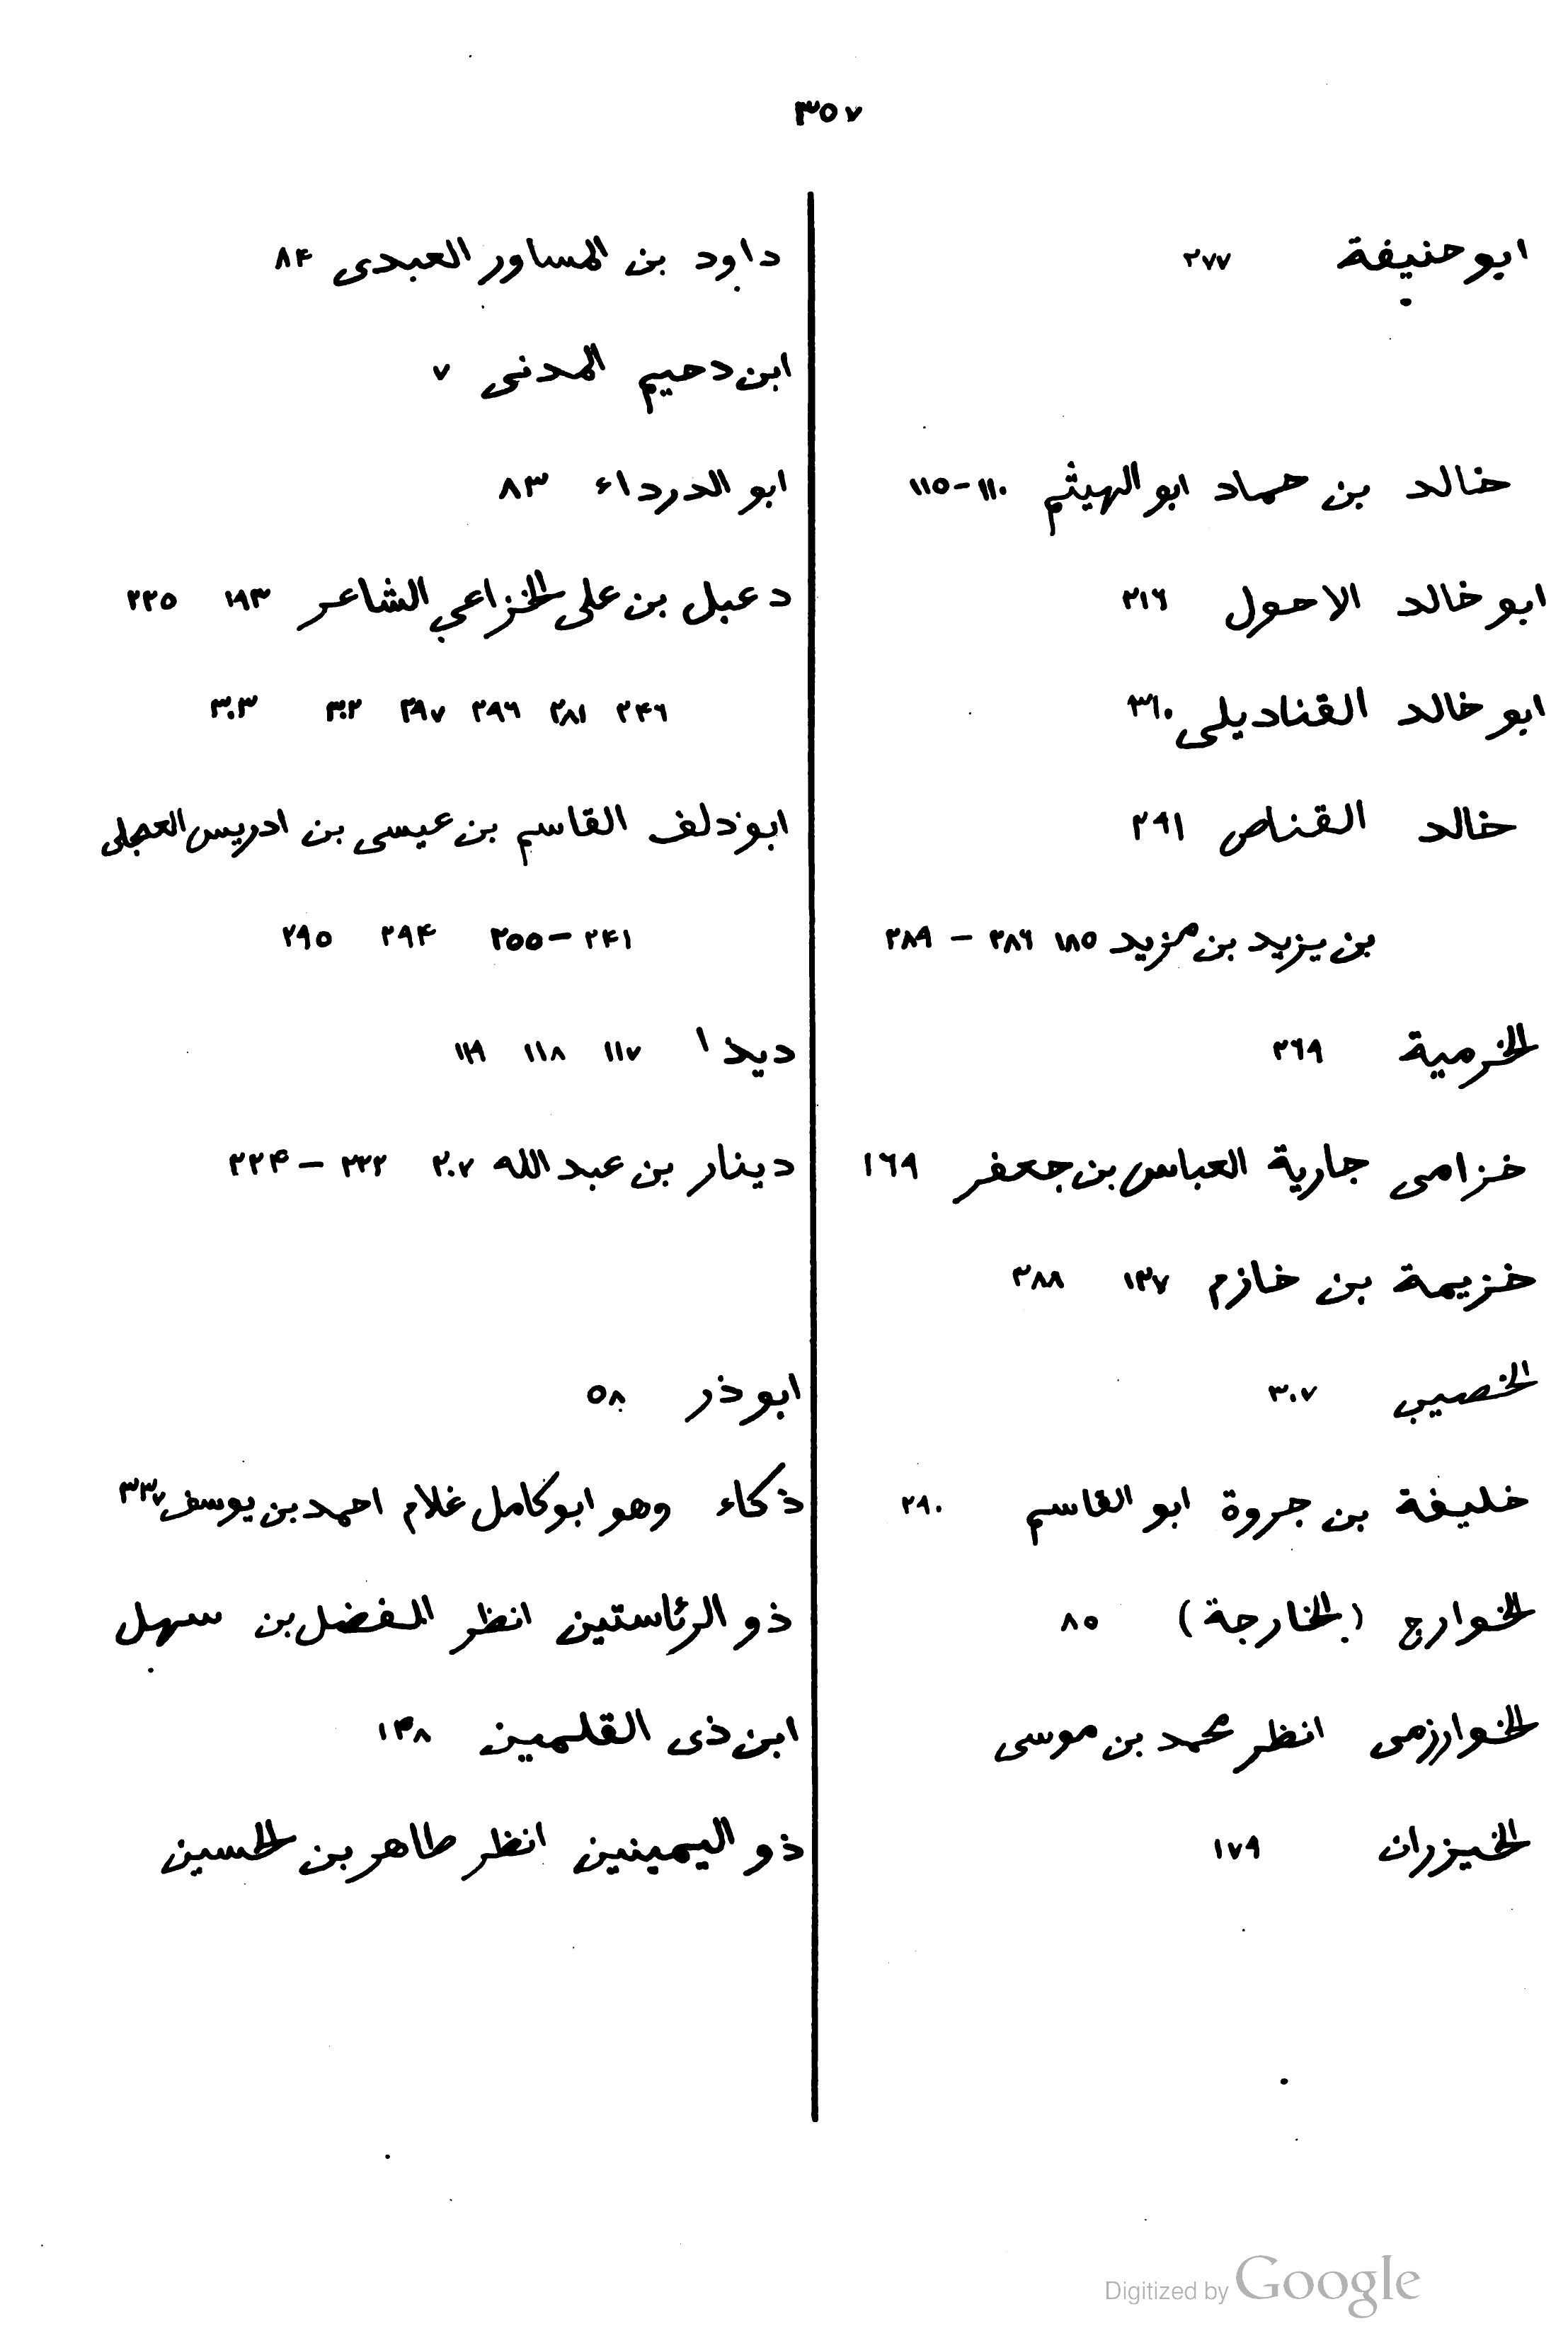 ٣٥٧
ابو حنيفة ٢٧٧
خالد بن حماد ابو الهيثم ١١٠-١١٥
ابو خالد الاحول ٢١٦
ابو خالد القناديلى ٣٦٠
خالد القناص ٢٩١
بن يزيد بن مزيد ١٨٥ ٢٨٦ - ٢٨٩
الخرمية ٢٦٩
خزامى جارية العباس بن جعفر ١٦٩
خزيمة بن خازم ١٣٧ ٢٨٨
الخصيب ٣٠٧
خليفة بن جروة ابو القاسم ٢٩٠
الخوارج (الخارجة) ٨٥
الخوارزمى انظر محمد بن موسى
الخيزران ١٧٩
داود بن المساور العبدى ٨۴
ابن دحيم المدنى ٧
ابو الدرداء ٨٣
دعبل بن على الخزاعي الشاعر ١٩٣ ٢٢٥
٢۴٦ ٢٨١ ٢٩٦ ٢٩٧ ٣٠٢ ٣٠٣
ابو دلف القاسم بن عيسى بن ادريس العجلى
٢۴١ - ٢٥٥ ٢٩۴ ٢٩٥
ديدا ١١٧ ١١٨ ١١٩
دينار بن عبد الله ٢٠٧ ٢٢٢ - ٢٢۴
ابو ذر ٥٨
ذكاء وهو ابو كامل غلام احمد بن يوسف ٣٣٧
ذو الرئاستين انظر المفضل بن سهل
ابن ذى القلمين ١٣٨
ذو اليمينين انظر طاهر بن الحسين
Digitized by Google